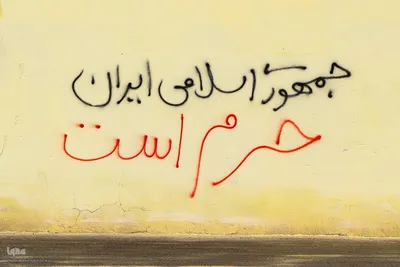 جمهوری اسلامی ایران
حرم است